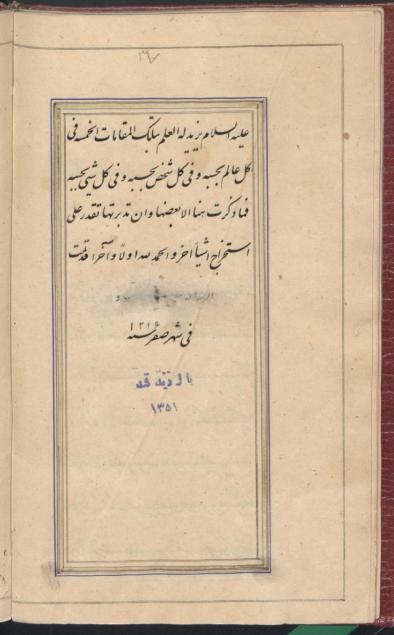 عليه السلام يزيد له العلم بتلك المقامات الخمسة فى
كل عالم بحسبه و فى كل شخص بحسبه و فى كل شيئ بحسبه
فما ذكرت هنا الا بعضها و ان تدبرتها تقدر على
استخراج اشيأ اخر و الحمد لله اولا و آخرا قد تمت
الرسالة
فى شهر صفر سنه ١٢١٥
باز دید شد
١٣٥١